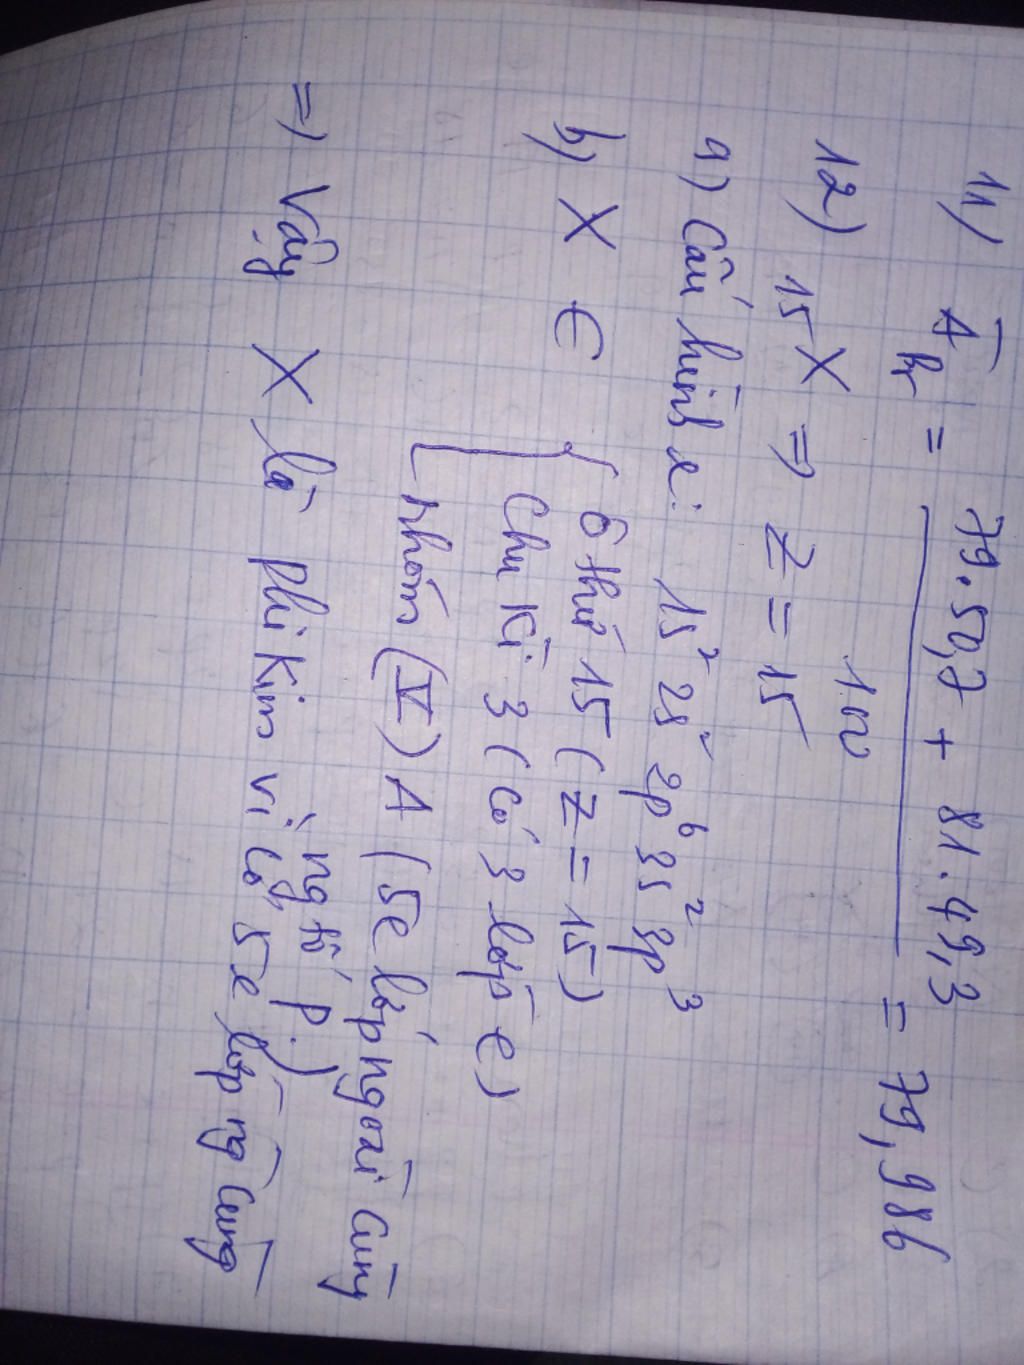 11) A̅Br = 79.50,7 + 81.49,3 / 100 = 79,986
12) 15X ⇒ Z = 15
a) Cấu hình e: 1s² 2s² 2p⁶ 3s² 3p³
b) X ∈ { Ô thứ 15 (Z = 15)
Chu kì 3 (có 3 lớp e)
Nhóm (V) A (5e lớp ngoài cùng
ng tố p.)
⇒ Vậy X là phi kim vì có 5e lớp ng cùng